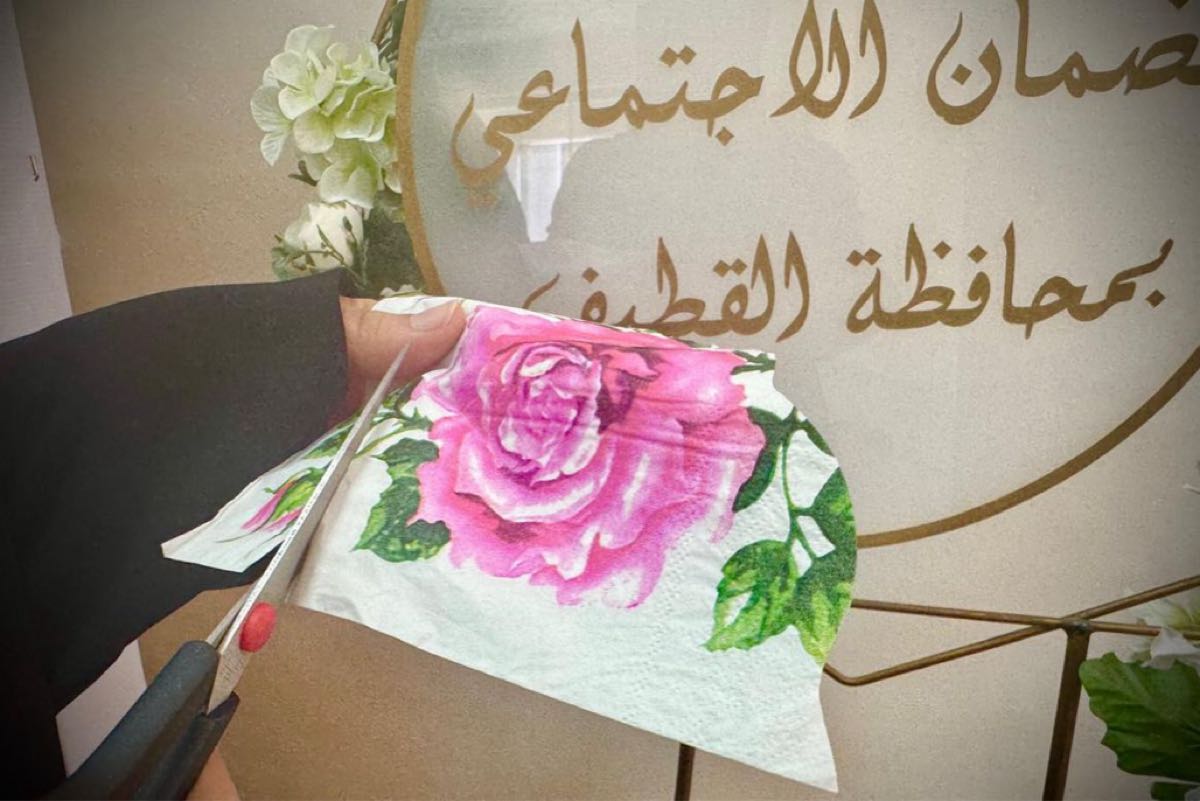 ضمان الاجتماعي
بمحافظة القطيف